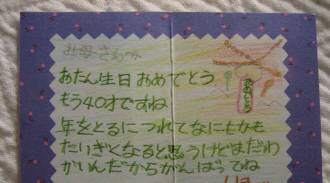 お母さんへ
おたん生日おめでとう
もう40才ですね
年をとるにつれてなにもかも
たいぎくなると思うけどまだわ
かいんだからがんばってね